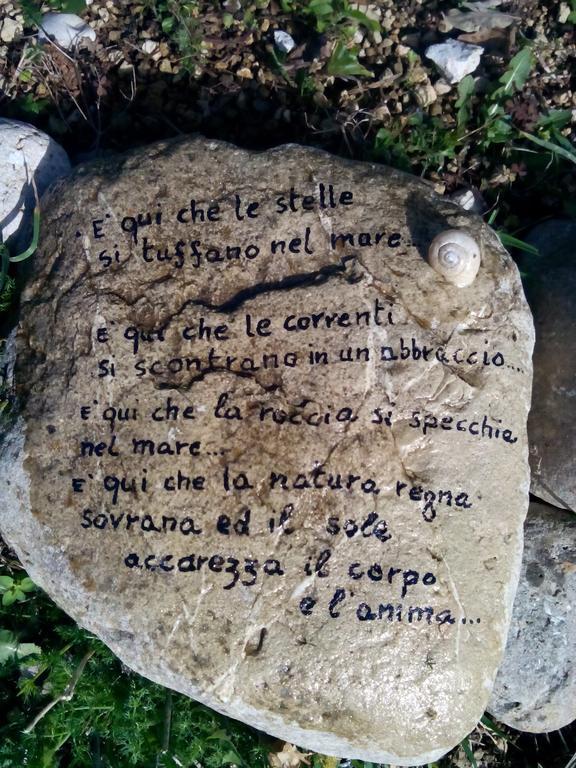 E' qui che le stelle
si tuffano nel mare...
E' qui che le correnti
si scontrano in un abbraccio....
E' qui che la roccia si specchia
nel mare...
E' qui che la natura regna
sovrana ed il sole
accarezza il corpo
e l'anima...